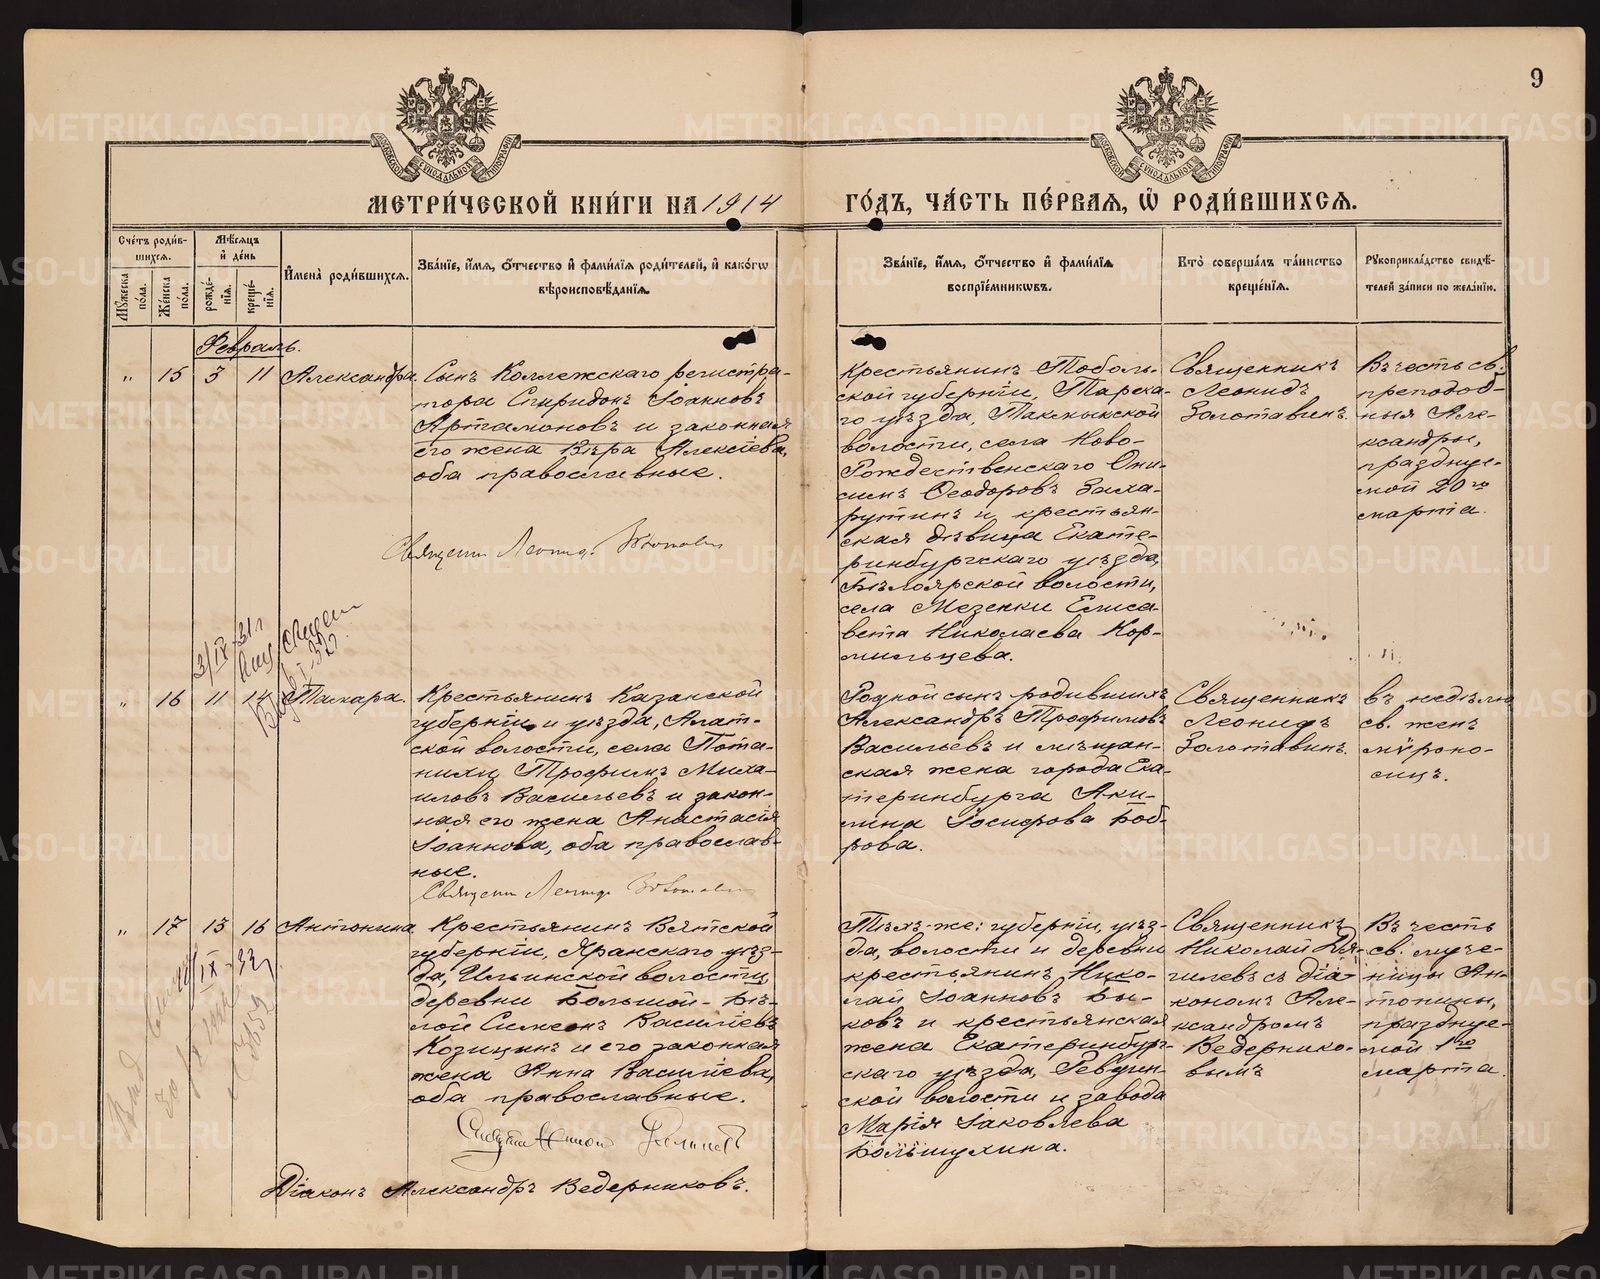 9
МЕТРИ́ЧЕСКОЙ КНИ́ГИ НА 1914 ГО́ДЪ, ЧА́СТЬ ПЕ́РВАЯ, Ѡ РОДИ́ВШИХСЯ.
Сче́тъ роди́в-
шихся.
Му́жеска по́ла.
Же́нска по́ла.
Мѣ́сяцъ и҆ де́нь
рожде́-
нїя.
креще́-
нїя.
И҆мена̀ роди́вшихся.
Зва́нїе, и҆́мя, ѻ҆́тчество и҆ фами́лїя роди́телей, и҆ како́гѡ
вѣроисповѣ́данїя.
Зва́нїе, и҆́мя, ѻ҆́тчество и҆ фами́лїя
воспрїе́мникѡвъ.
Кто̀ соверша́лъ та́инство
креще́нїя.
Рꙋкоприкла́дство свидѣ́-
телей за́писи по жела́нїю.
Февраль.
" 15 3 11 Александра.
Сынъ Коллежскаго регистра-
тора Спиридонъ Іоанновъ
Артамоновъ и законная
его жена Вѣра Алексіева,
оба православные.
Крестьянинъ Тоболь-
ской губерніи, Тарска-
го уѣзда, Такмыкской
волости, села Ново-
Рождественскаго Они-
симъ Ѳеодоровъ
и крестьян-
ская дѣвица Екате-
ринбургскаго уѣзда,
Бѣлоярской волости,
села Мезенки Елиса-
вета Николаева Кор-
мильцева.
Священникъ
Леонидъ
Золотавинъ.
Въ честь св.
преподоб-
ныя Але-
ксандры,
празднуе-
мой 20го
марта.
Священн. Леонид. Золотавин
3/IX-31г
" 16 11 14 Тамара.
Крестьянинъ Казанской
губерніи и уѣзда, Алат-
ской волости, села Пота-
нихи Трофимъ Миха-
иловъ Васильевъ и закон-
ная его жена Анастасія
Іоаннова, оба православ-
ные.
Родной сынъ родившихъ
Александръ Трофимовъ
Васильевъ и мѣщан-
ская жена города Ека-
теринбурга Аки-
лина Іосифова Боб-
рова.
Священникъ
Леонидъ
Золотавинъ.
въ недѣлю
св. женъ
мѵроно-
сицъ.
Священн Леонид Золотавин
" 17 13 16 Антонина.
Крестьянинъ Вятской
губерніи, Яранскаго уѣз-
да, Ильинской волости,
деревни Большой-Бѣ-
лой Симеонъ Василіевъ
Козицынъ и его законная
жена Анна Василіева,
оба православные.
Тѣхъ-же: губерніи, уѣз-
да, волости и деревни
крестьянинъ Нико-
лай Іоанновъ Бы-
ковъ и крестьянская
жена Екатеринбург-
скаго уѣзда, Ревдин-
ской волости и завода
Марія Іаковлева
Большухина.
Священникъ
Николай Дя-
гилевъ съ діа-
кономъ Але-
ксандромъ
Ведернико-
вымъ
Въ честь
св. муче-
ницы Ан-
тонины,
празднуе-
мой 1го
марта.
Діаконъ Александръ Ведерниковъ.